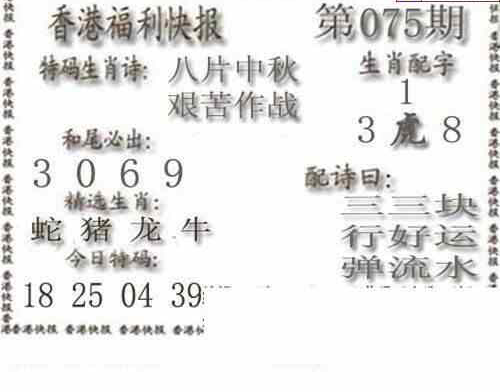 香港福利快报
第075期
特码生肖诗:
八片中秋
艰苦作战
生肖配字
1
3 虎 8
和尾必出:
3 0 6 9
配诗曰:
三三块
行好运
弹流水
精选生肖:
蛇 猪 龙 牛
今日特码:
18 25 04 39
香港快报 香港快报 香港快报 香港快报